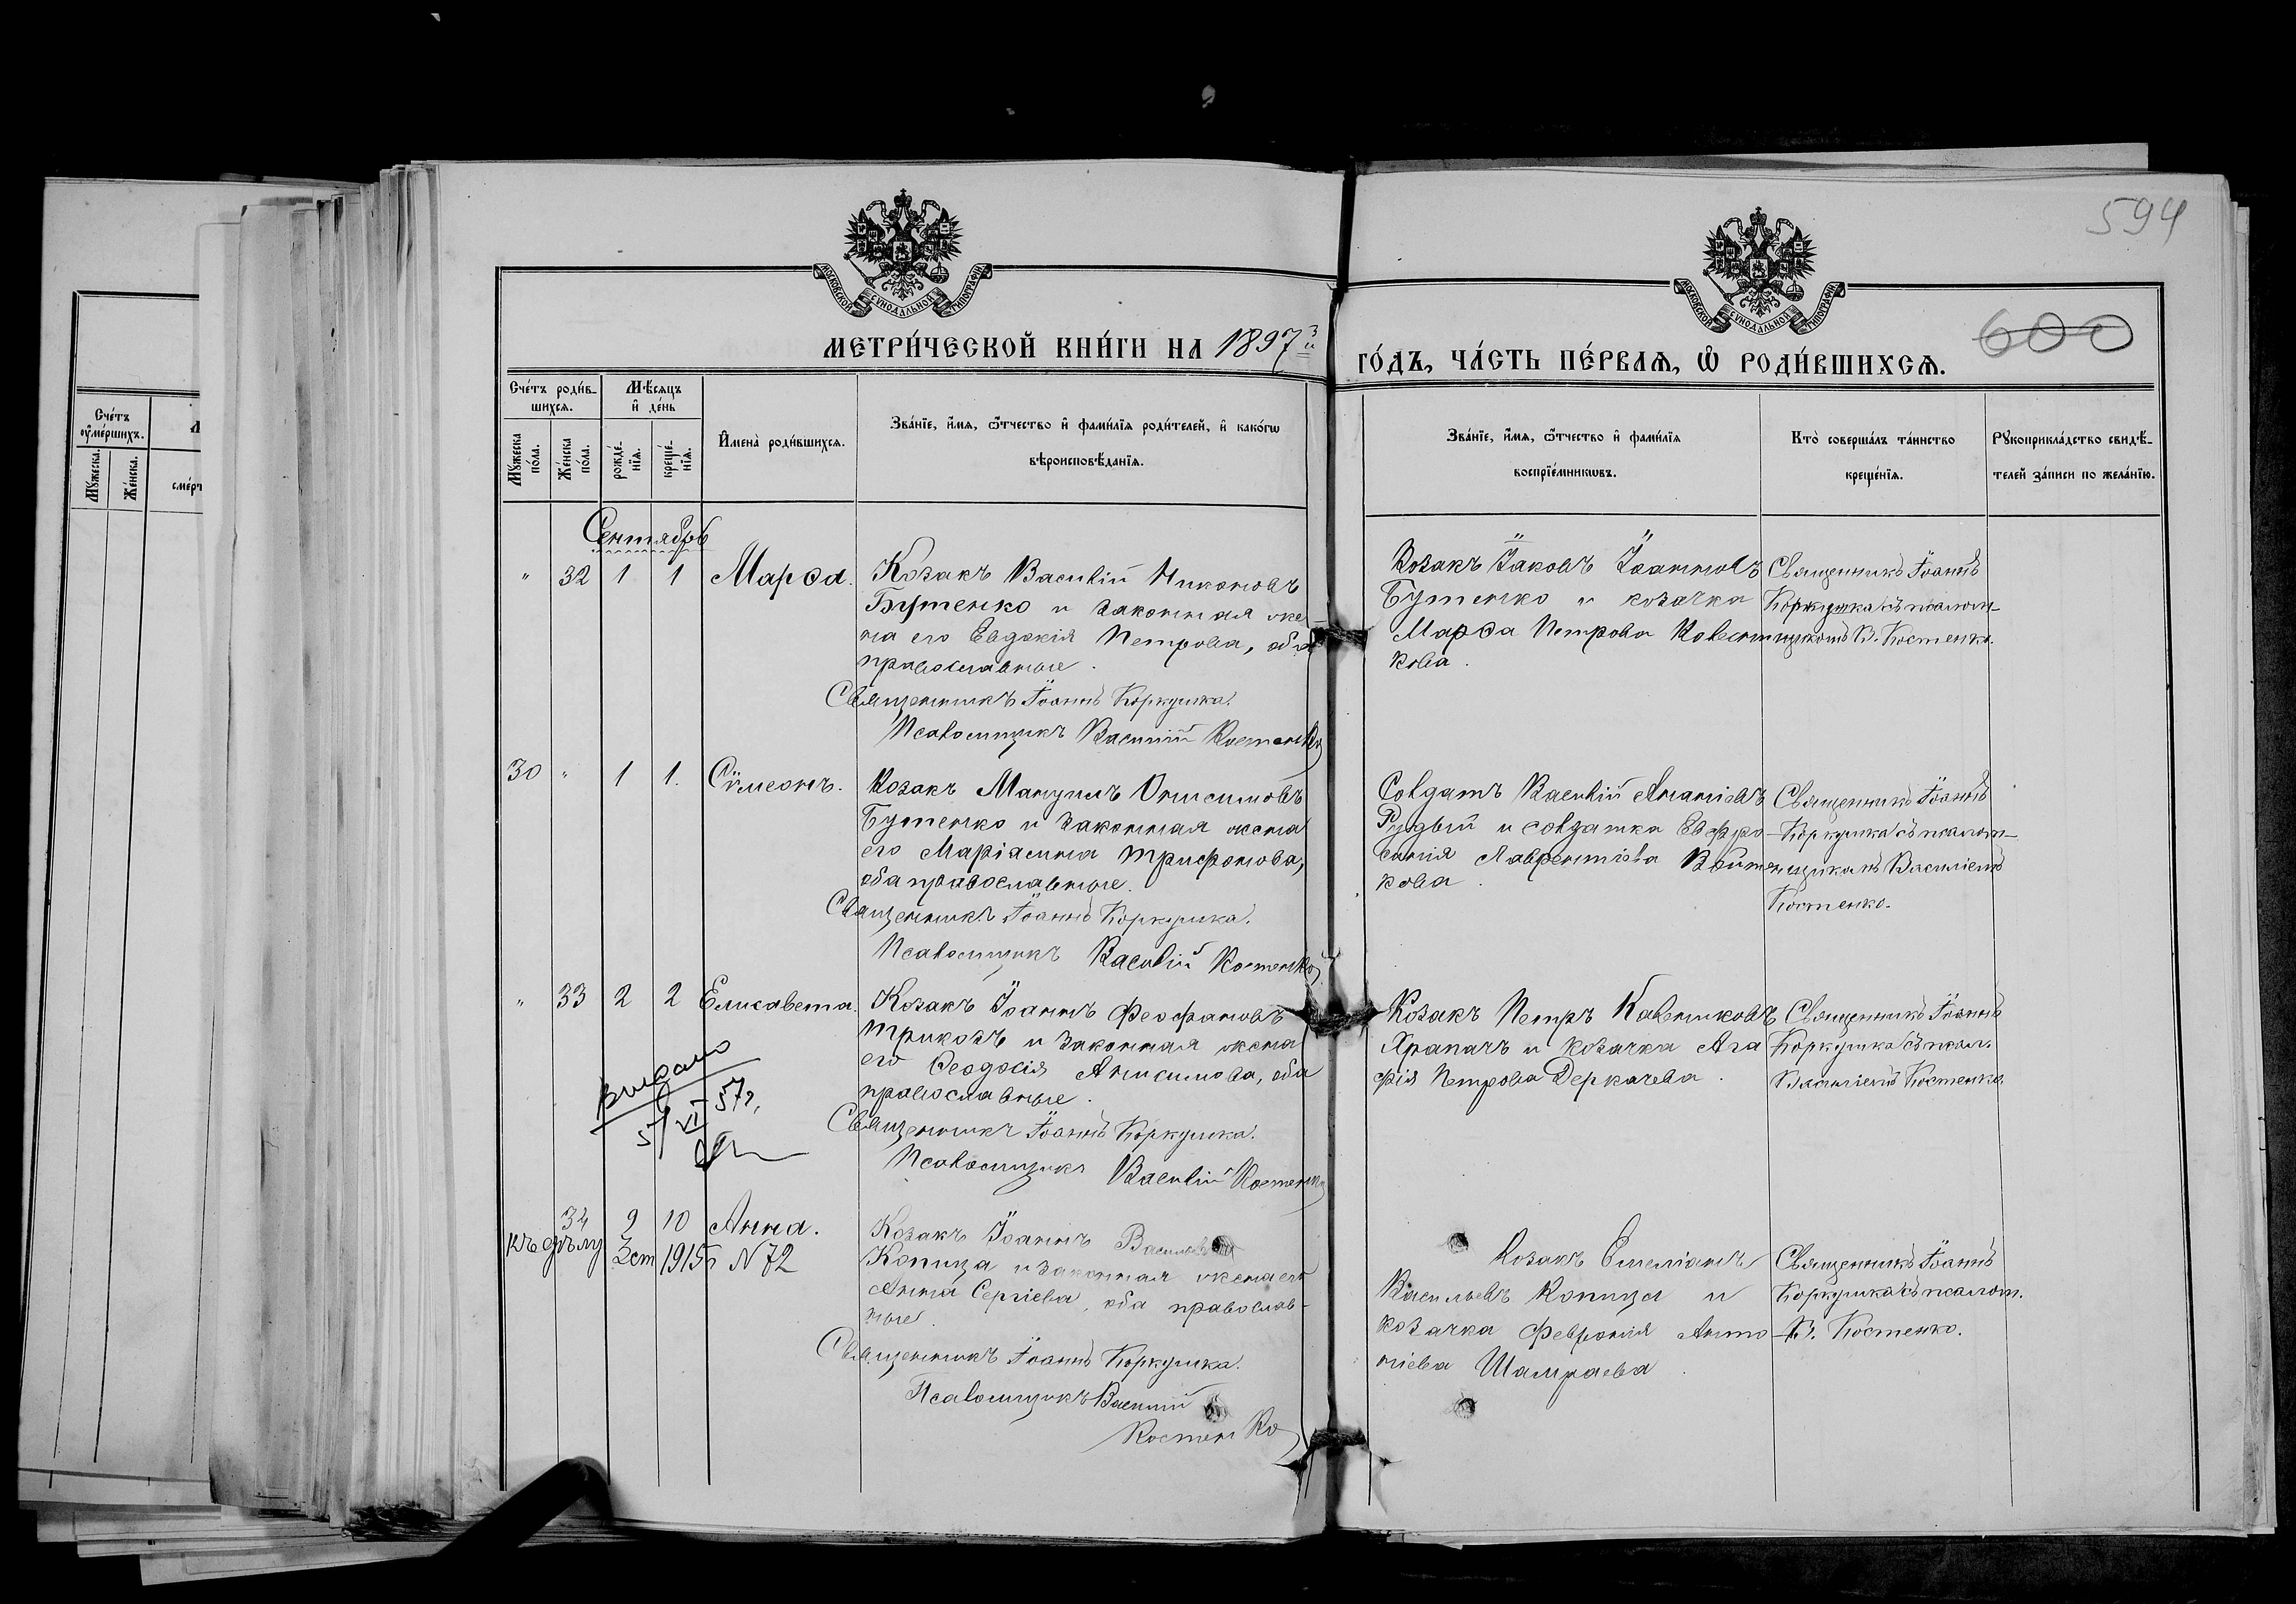 594
600
МОСКОВСКОЙ СѴНОДАЛЬНОЙ ТИПОГРАФІИ
МОСКОВСКОЙ СѴНОДАЛЬНОЙ ТИПОГРАФІИ
МЕТРИ́ЧЕСКОЙ КНИ́ГИ НА 1897й
ГО́ДЪ, ЧА́СТЬ ПЕ́РВАѦ, Ѽ РОДИ́ВШИХСѦ.
Сче́тъ ᲂумершихъ.
Мꙋ́жеска.
Же́нска.
Сче́тъ роди́в-
шихсѧ.
Мꙋ́жеска по́ла.
Же́нска по́ла.
Мѣ́сѧцъ
и҆ де́нь
рожде́-
нїѧ.
креще́-
нїѧ.
И҆мена̀ роди́вшихсѧ.
Зва́нїе, и҆́мѧ, ѻ҆́тчество и҆ фами́лїѧ роди́телей, и҆ како́гѡ
вѣроисповѣ́данїѧ.
Зва́нїе, и҆́мѧ, ѻ҆́тчество и҆ фами́лїѧ
воспрїе́мникѡвъ.
Кто̀ соверша́лъ та́инство
креще́нїѧ.
Рꙋкоприкла́дство свидѣ́-
телей за́писи по жела́нїю.
Сентябрь
" 32 1 1 Марѳа.
Козакъ Василій Никоновъ
Бутенко и законная же-
на его Евдокія Петрова, оба
православные.
Священникъ Іоаннъ Коркушка.
Псаломщикъ Василій Костенко
Козакъ Іаковъ Іоанновъ
Бутенко и козачка
Марѳа Петрова Колесни
кова.
Священникъ Іоаннъ
Коркушка съ псалом-
щикомъ В. Костенко.
30 " 1 1. Сѵмеонъ.
Козакъ Мануилъ Онисимовъ
Бутенко и законная жена
его Маріамна Трифонова,
оба православные.
Священникъ Іоаннъ Коркушка.
Псаломщикъ Василій Костенко
Солдатъ Василій Ананіевъ
Рудый и солдатка Евфро-
синія Лаврентіева Войтен
кова.
Священникъ Іоаннъ
Коркушка съ псалом-
щикомъ Василіемъ
Костенко.
" 33 2 2 Елисавета.
Козакъ Іоаннъ Феофановъ
Триковъ и законная жена
его Ѳеодосія Анисимова, оба
православные.
Священникъ Іоаннъ Коркушка.
Псаломщикъ Василій Костенко
Козакъ Петръ Калениковъ
Храпачъ и козачка Ага
фія Петрова Деркачева.
Священникъ Іоаннъ
Коркушка съ псал.
Василіемъ Костенко.
видано
5/VI-57г.
34 9 10 Анна.
Къ дѣлу Зст 1915г N 72
Козакъ Іоаннъ Васильевъ
Копица и законная жена его
Анна Сергіева, оба православ-
ные.
Священникъ Іоаннъ Коркушка.
Псаломщикъ Василій
Костенко
Козакъ Емеліанъ
Васильевъ Копица и
козачка Февронія Анто-
ніева Шамраева.
Священникъ Іоаннъ
Коркушка съ псалом.
В. Костенко.